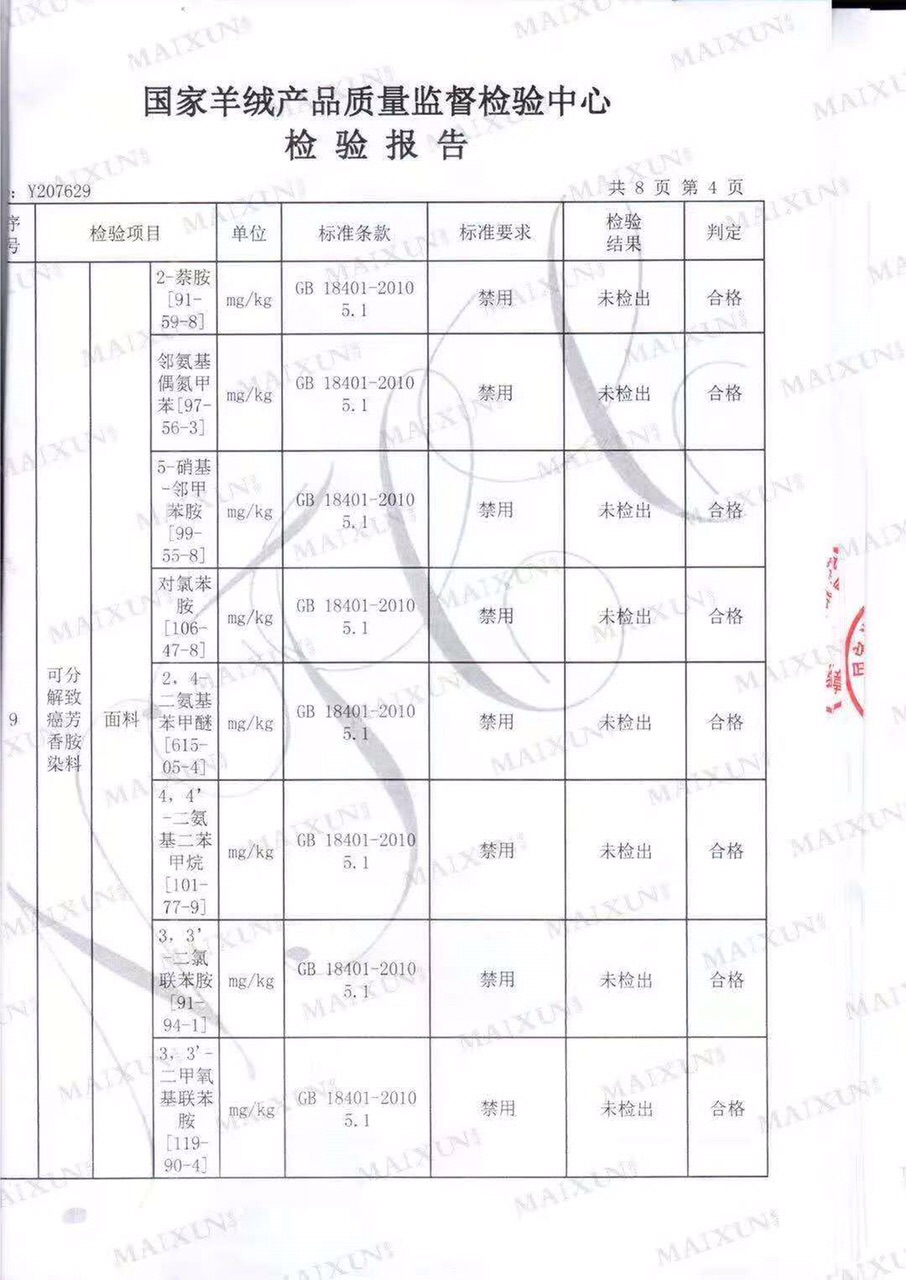 国家羊绒产品质量监督检验中心
检 验 报 告
: Y207629
共 8 页 第 4 页
序号 检验项目 单位 标准条款 标准要求 检验结果 判定
9 可分解致癌芳香胺染料 面料
2-萘胺[91-59-8] mg/kg GB 18401-2010 5.1 禁用 未检出 合格
邻氨基偶氮甲苯[97-56-3] mg/kg GB 18401-2010 5.1 禁用 未检出 合格
5-硝基-邻甲苯胺[99-55-8] mg/kg GB 18401-2010 5.1 禁用 未检出 合格
对氯苯胺[106-47-8] mg/kg GB 18401-2010 5.1 禁用 未检出 合格
2, 4-二氨基苯甲醚[615-05-4] mg/kg GB 18401-2010 5.1 禁用 未检出 合格
4, 4'-二氨基二苯甲烷[101-77-9] mg/kg GB 18401-2010 5.1 禁用 未检出 合格
3, 3'-二氯联苯胺[91-94-1] mg/kg GB 18401-2010 5.1 禁用 未检出 合格
3, 3'-二甲氧基联苯胺[119-90-4] mg/kg GB 18401-2010 5.1 禁用 未检出 合格
MAIXUN